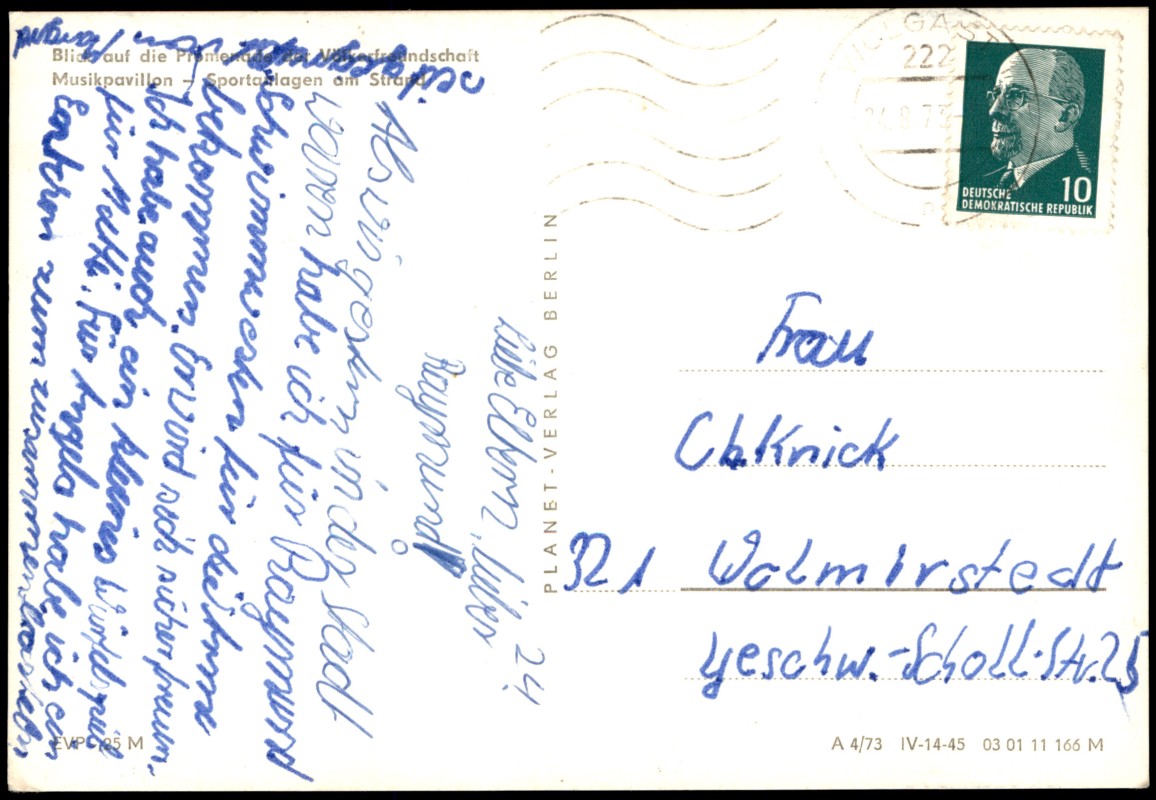 Blick auf die Promenade der Völkerfreundschaft
Musikpavillon – Sportanlagen am Strand
24.
Liebe Eltern, lieber
Raymund
Als wir gestern in der Stadt
waren habe ich für Raymund
Schwimmwesten für die Arme
bekommen. Er wird sich sicher freuen.
Ich habe auch ein kleines Würfelspiel
für
Für Angela habe ich ein
zum zusammen
EVP 0,25 M
PLANET-VERLAG BERLIN
WOLGAST
222
DEUTSCHE
DEMOKRATISCHE REPUBLIK
10
Frau
Ch. Knick
321 Wolmirstedt
Geschw.-Scholl-Str. 25
A 4/73 IV-14-45 03 01 11 166 M